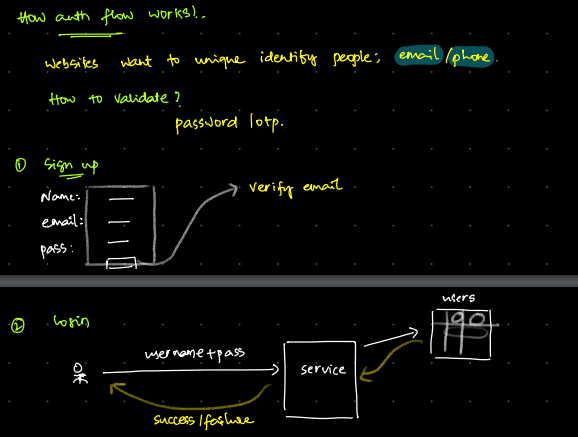 How auth flow works!.
websites want to unique identify people; email/phone.
How to validate?
password/otp.
① Sign up
Name:
email:
pass:
verify email
② Login
users
username+pass
service
success/failure